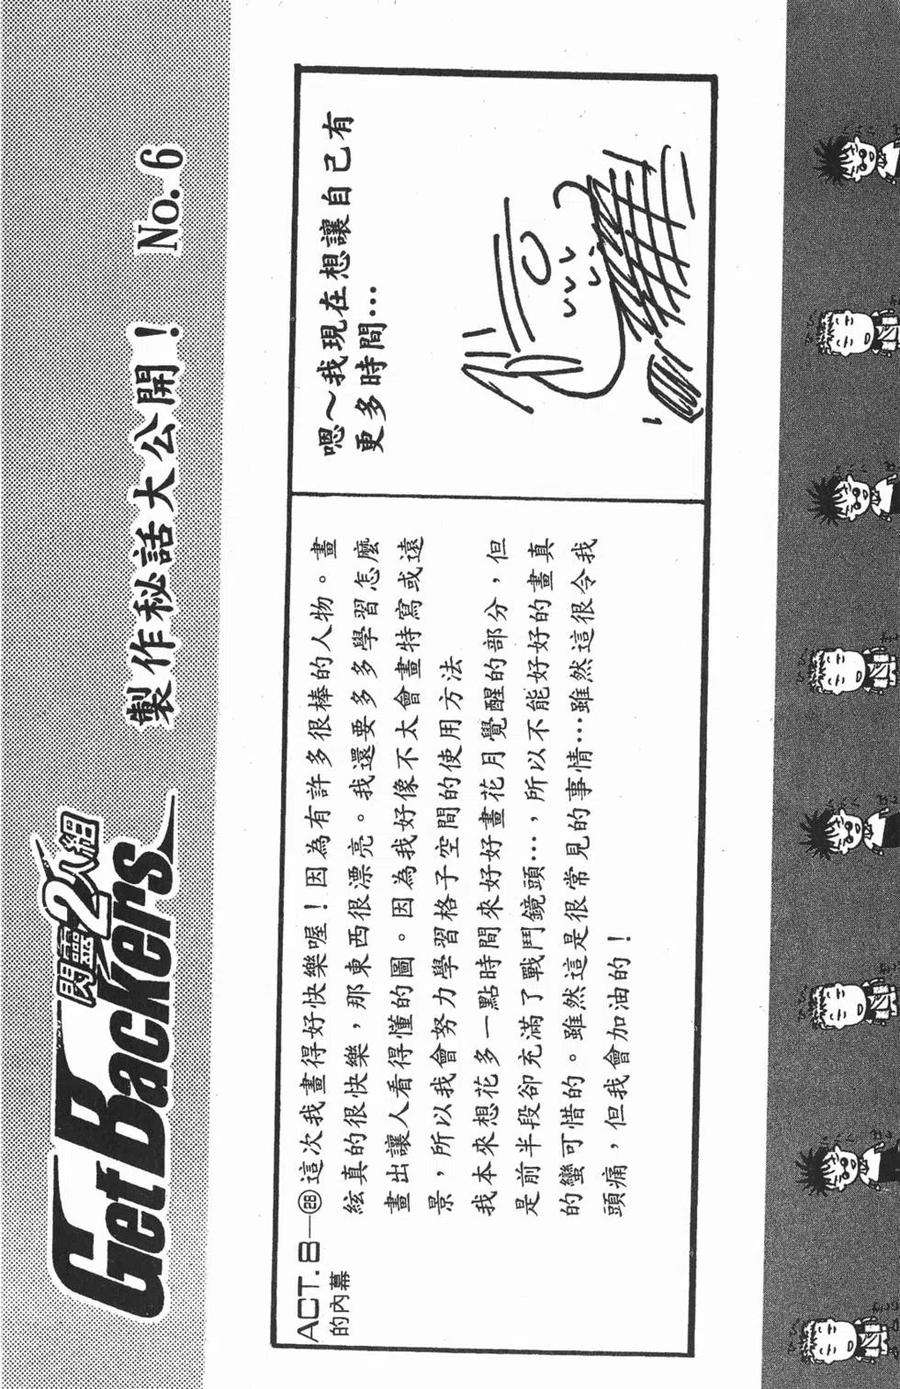 GetBackers
閃靈2人組
製作秘話大公開！ No.6
ACT.8—㉘
的內幕
這次我畫得好快樂喔！因為有許多很棒的人物。畫
絃真的很快樂，那東西很漂亮。我還要多多學習怎麼
畫出讓人看得懂的圖。因為我好像不太會畫特寫或遠
景，所以我會努力學習格子空間的使用方法
我本來想花多一點時間來好好畫花月覺醒的部分，但
是前半段卻充滿了戰鬥鏡頭…，所以不能好好的畫真
的蠻可惜的。雖然這是很常見的事情…雖然這很令我
頭痛，但我會加油的！
嗯～我現在想讓自己有
更多時間…